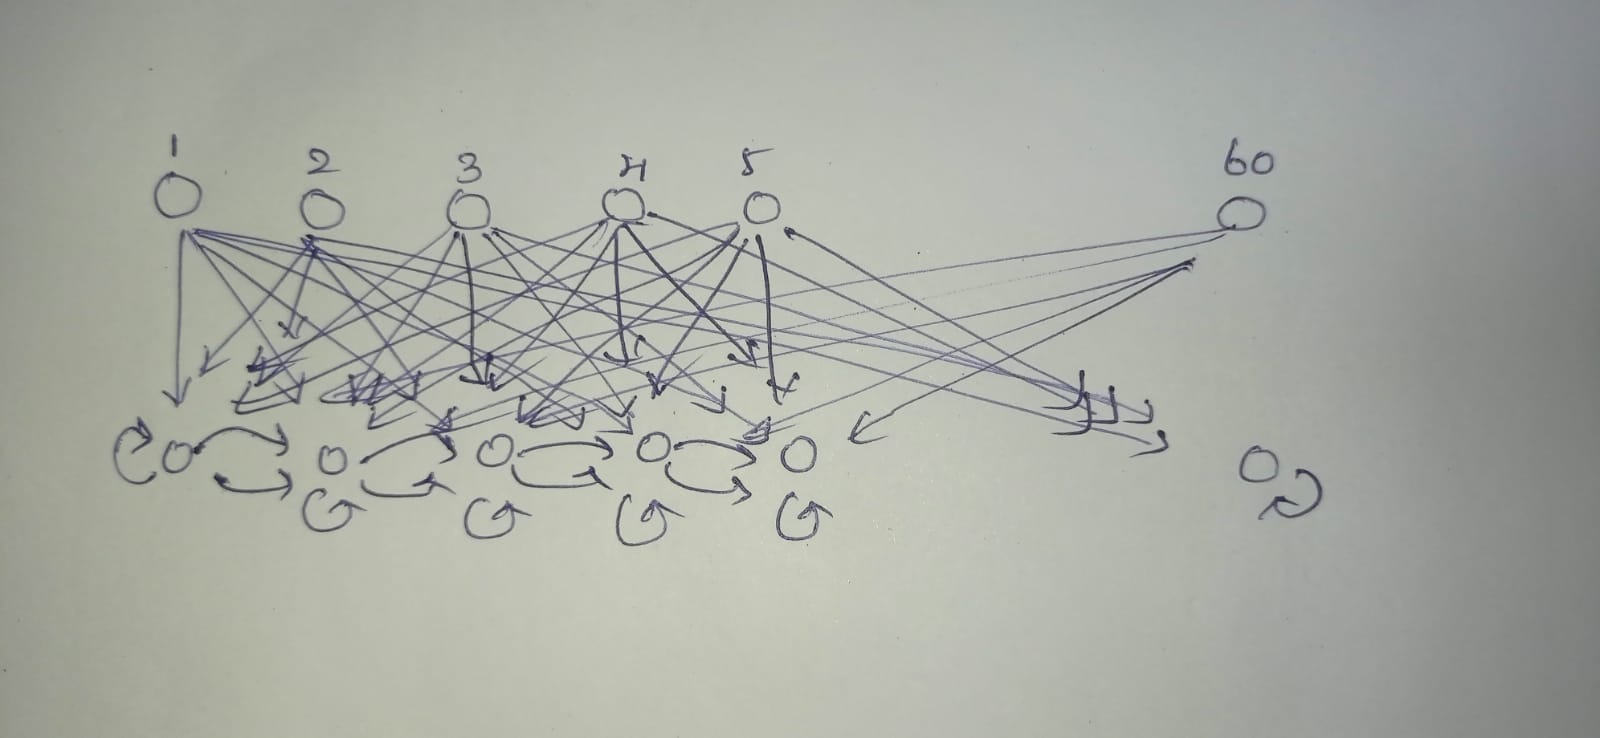 1 2 3 4 5 60